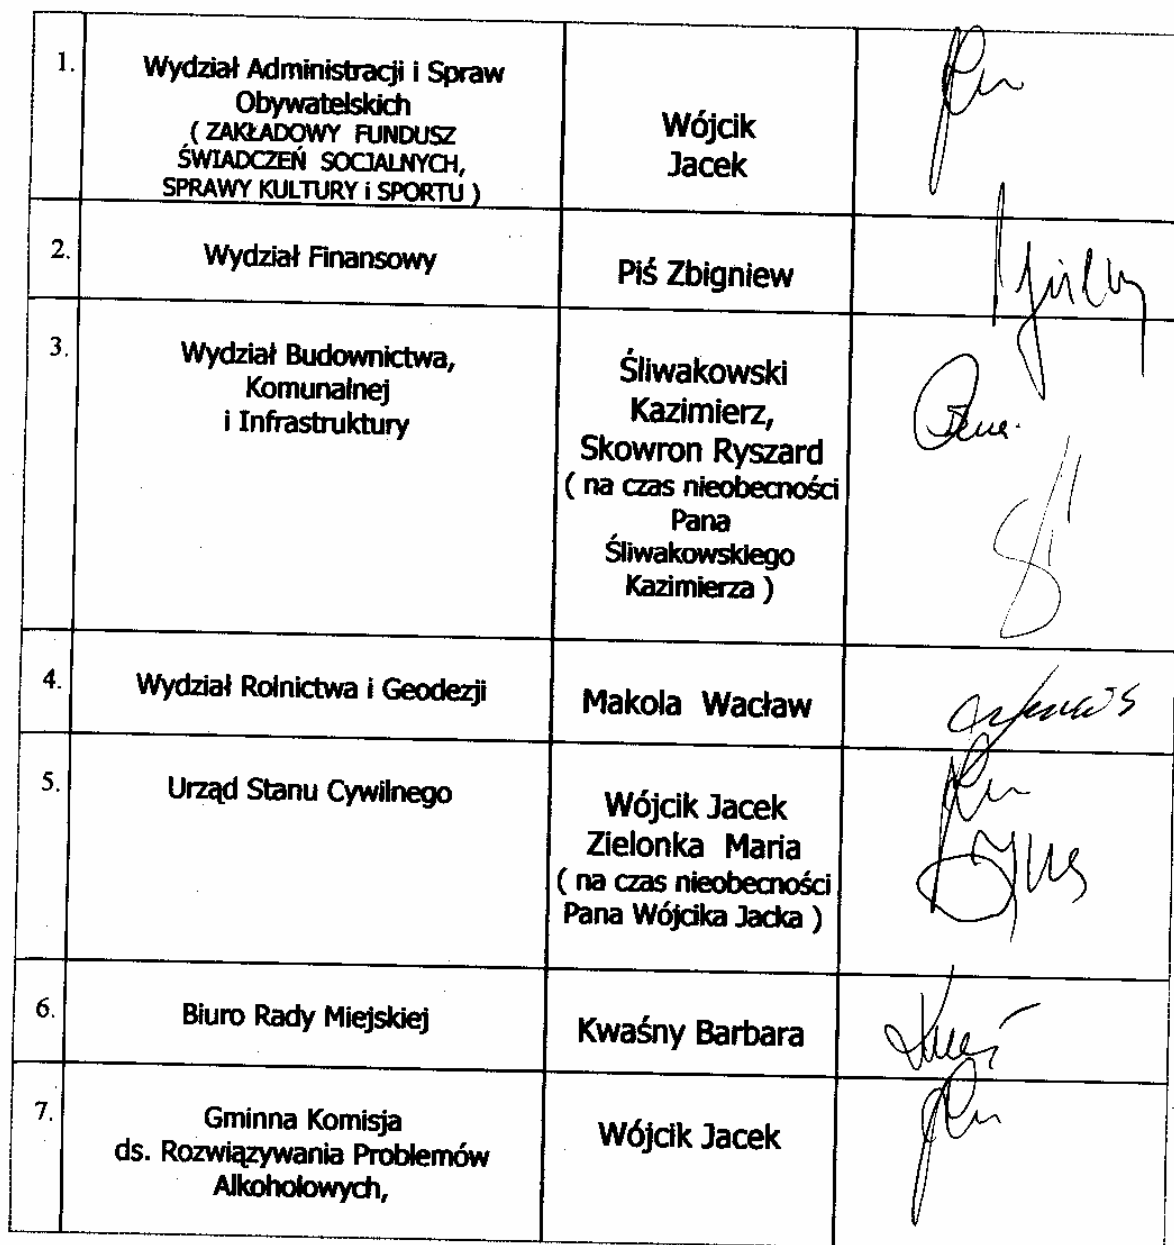 1.
Wydział Administracji i Spraw
Obywatelskich
( ZAKŁADOWY FUNDUSZ
ŚWIADCZEŃ SOCJALNYCH,
SPRAWY KULTURY i SPORTU )
Wójcik
Jacek
2.
Wydział Finansowy
Piś Zbigniew
3.
Wydział Budownictwa,
Komunalnej
i Infrastruktury
Śliwakowski
Kazimierz,
Skowron Ryszard
( na czas nieobecności
Pana
Śliwakowskiego
Kazimierza )
4.
Wydział Rolnictwa i Geodezji
Makola Wacław
5.
Urząd Stanu Cywilnego
Wójcik Jacek
Zielonka Maria
( na czas nieobecności
Pana Wójcika Jacka )
6.
Biuro Rady Miejskiej
Kwaśny Barbara
7.
Gminna Komisja
ds. Rozwiązywania Problemów
Alkoholowych,
Wójcik Jacek